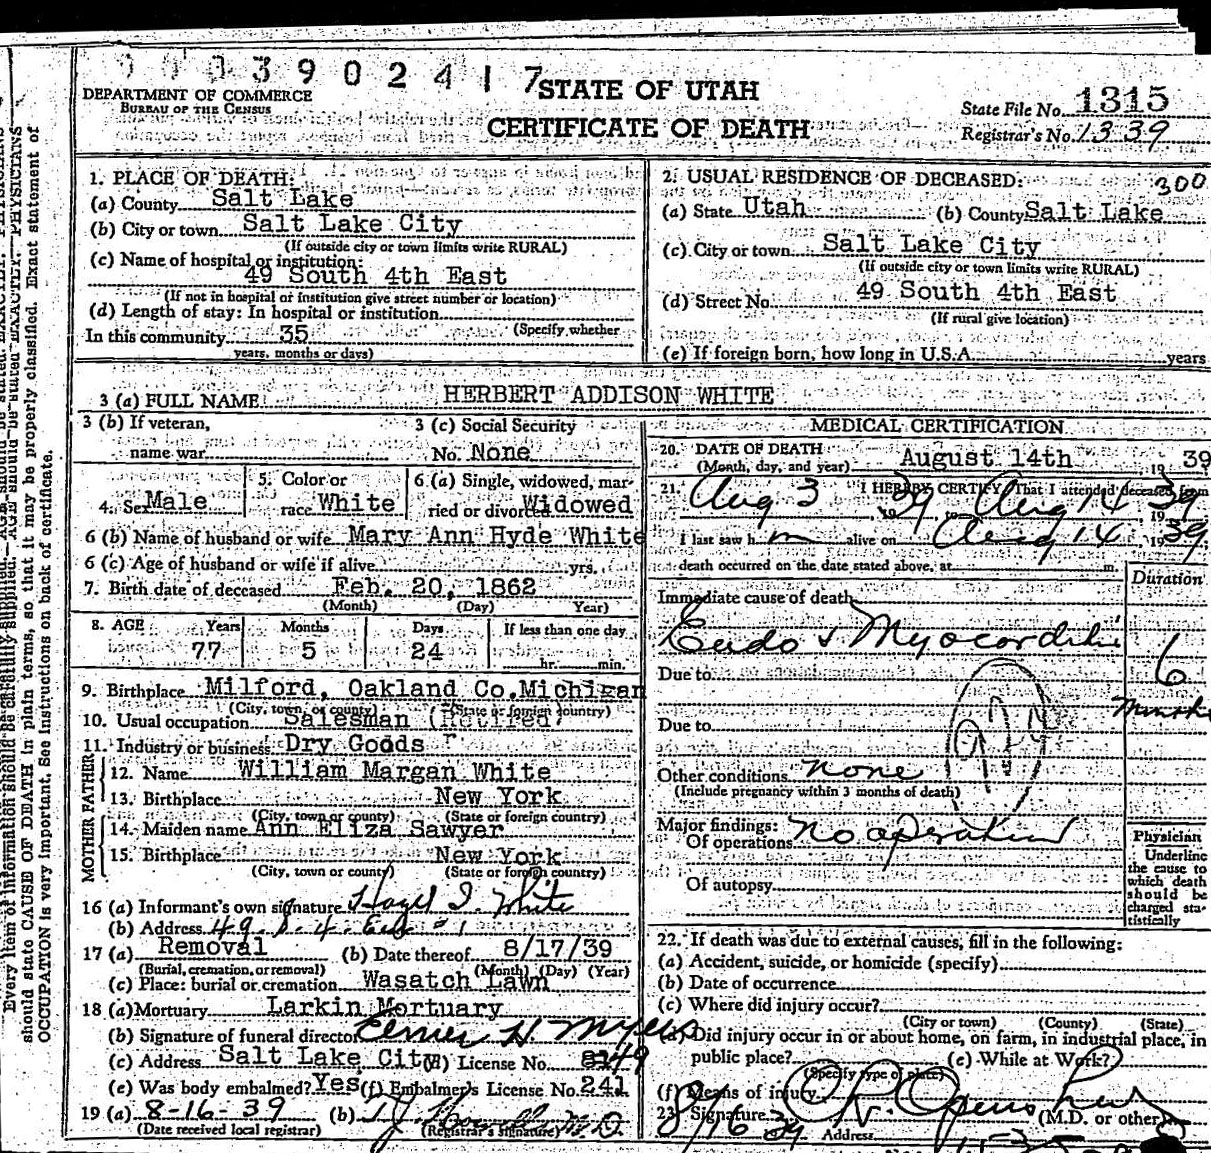 0003902417
STATE OF UTAH
DEPARTMENT OF COMMERCE
BUREAU OF THE CENSUS
CERTIFICATE OF DEATH
State File No. 1315
Registrar's No. 1339
1. PLACE OF DEATH:
(a) County Salt Lake
(b) City or town Salt Lake City
(If outside city or town limits write RURAL)
(c) Name of hospital or institution:
49 South 4th East
(If not in hospital or institution give street number or location)
(d) Length of stay: In hospital or institution
(Specify whether
In this community 35
years, months or days)
2. USUAL RESIDENCE OF DECEASED:
300
(a) State Utah (b) County Salt Lake
(c) City or town Salt Lake City
(If outside city or town limits write RURAL)
(d) Street No. 49 South 4th East
(If rural give location)
(e) If foreign born, how long in U.S.A. years
3 (a) FULL NAME HERBERT ADDISON WHITE
3 (b) If veteran,
name war
3 (c) Social Security
No. None
4. Sex Male
5. Color or
race White
6 (a) Single, widowed, mar-
ried or divorced Widowed
6 (b) Name of husband or wife Mary Ann Hyde White
6 (c) Age of husband or wife if alive yrs.
7. Birth date of deceased Feb. 20, 1862
(Month) (Day) Year)
8. AGE Years Months Days If less than one day
77 5 24 hr. min.
9. Birthplace Milford, Oakland Co. Michigan
(City, town, or county) (State or foreign country)
10. Usual occupation Salesman (Retired)
11. Industry or business Dry Goods
FATHER
12. Name William Margan White
13. Birthplace New York
(City, town or county) (State or foreign country)
MOTHER
14. Maiden name Ann Eliza Sawyer
15. Birthplace New York
(City, town or county) (State or foreign country)
16 (a) Informant's own signature Hazel I. White
(b) Address 49 S. 4 East
17 (a) Removal (b) Date thereof 8/17/39
(Burial, cremation, or removal) (Month) (Day) (Year)
(c) Place: burial or cremation Wasatch Lawn
18 (a) Mortuary Larkin Mortuary
(b) Signature of funeral director Elmer H. Myers
(c) Address Salt Lake City (d) License No. 49
(e) Was body embalmed? Yes (f) Embalmer's License No. 241
19 (a) 8-16-39 (b) M.D.
(Date received local registrar) (Registrar's signature)
MEDICAL CERTIFICATION
20. DATE OF DEATH
(Month, day, and year) August 14th, 1939
21. I HEREBY CERTIFY That I attended deceased from
Aug 3 1939 to Aug 14 1939
I last saw him alive on Aug 14, 1939
death occurred on the date stated above, at m.
Duration
Immediate cause of death
Endo & Myocarditis
6
Months
Due to
Due to
Other conditions none
(Include pregnancy within 3 months of death)
Major findings:
Of operations no operation
Of autopsy
Physician
Underline
the cause to
which death
should be
charged sta-
tistically
22. If death was due to external causes, fill in the following:
(a) Accident, suicide, or homicide (specify)
(b) Date of occurrence
(c) Where did injury occur?
(City or town) (County) (State)
(d) Did injury occur in or about home, on farm, in industrial place, in
public place? (e) While at Work?
(Specify type of place)
(f) Means of injury
23. Signature (M.D. or other)
8/16 39 Address
Every item of information should be carefully supplied. AGE should be stated EXACTLY. PHYSICIANS
should state CAUSE OF DEATH in plain terms, so that it may be properly classified. Exact statement of
OCCUPATION is very important. See instructions on back of certificate.